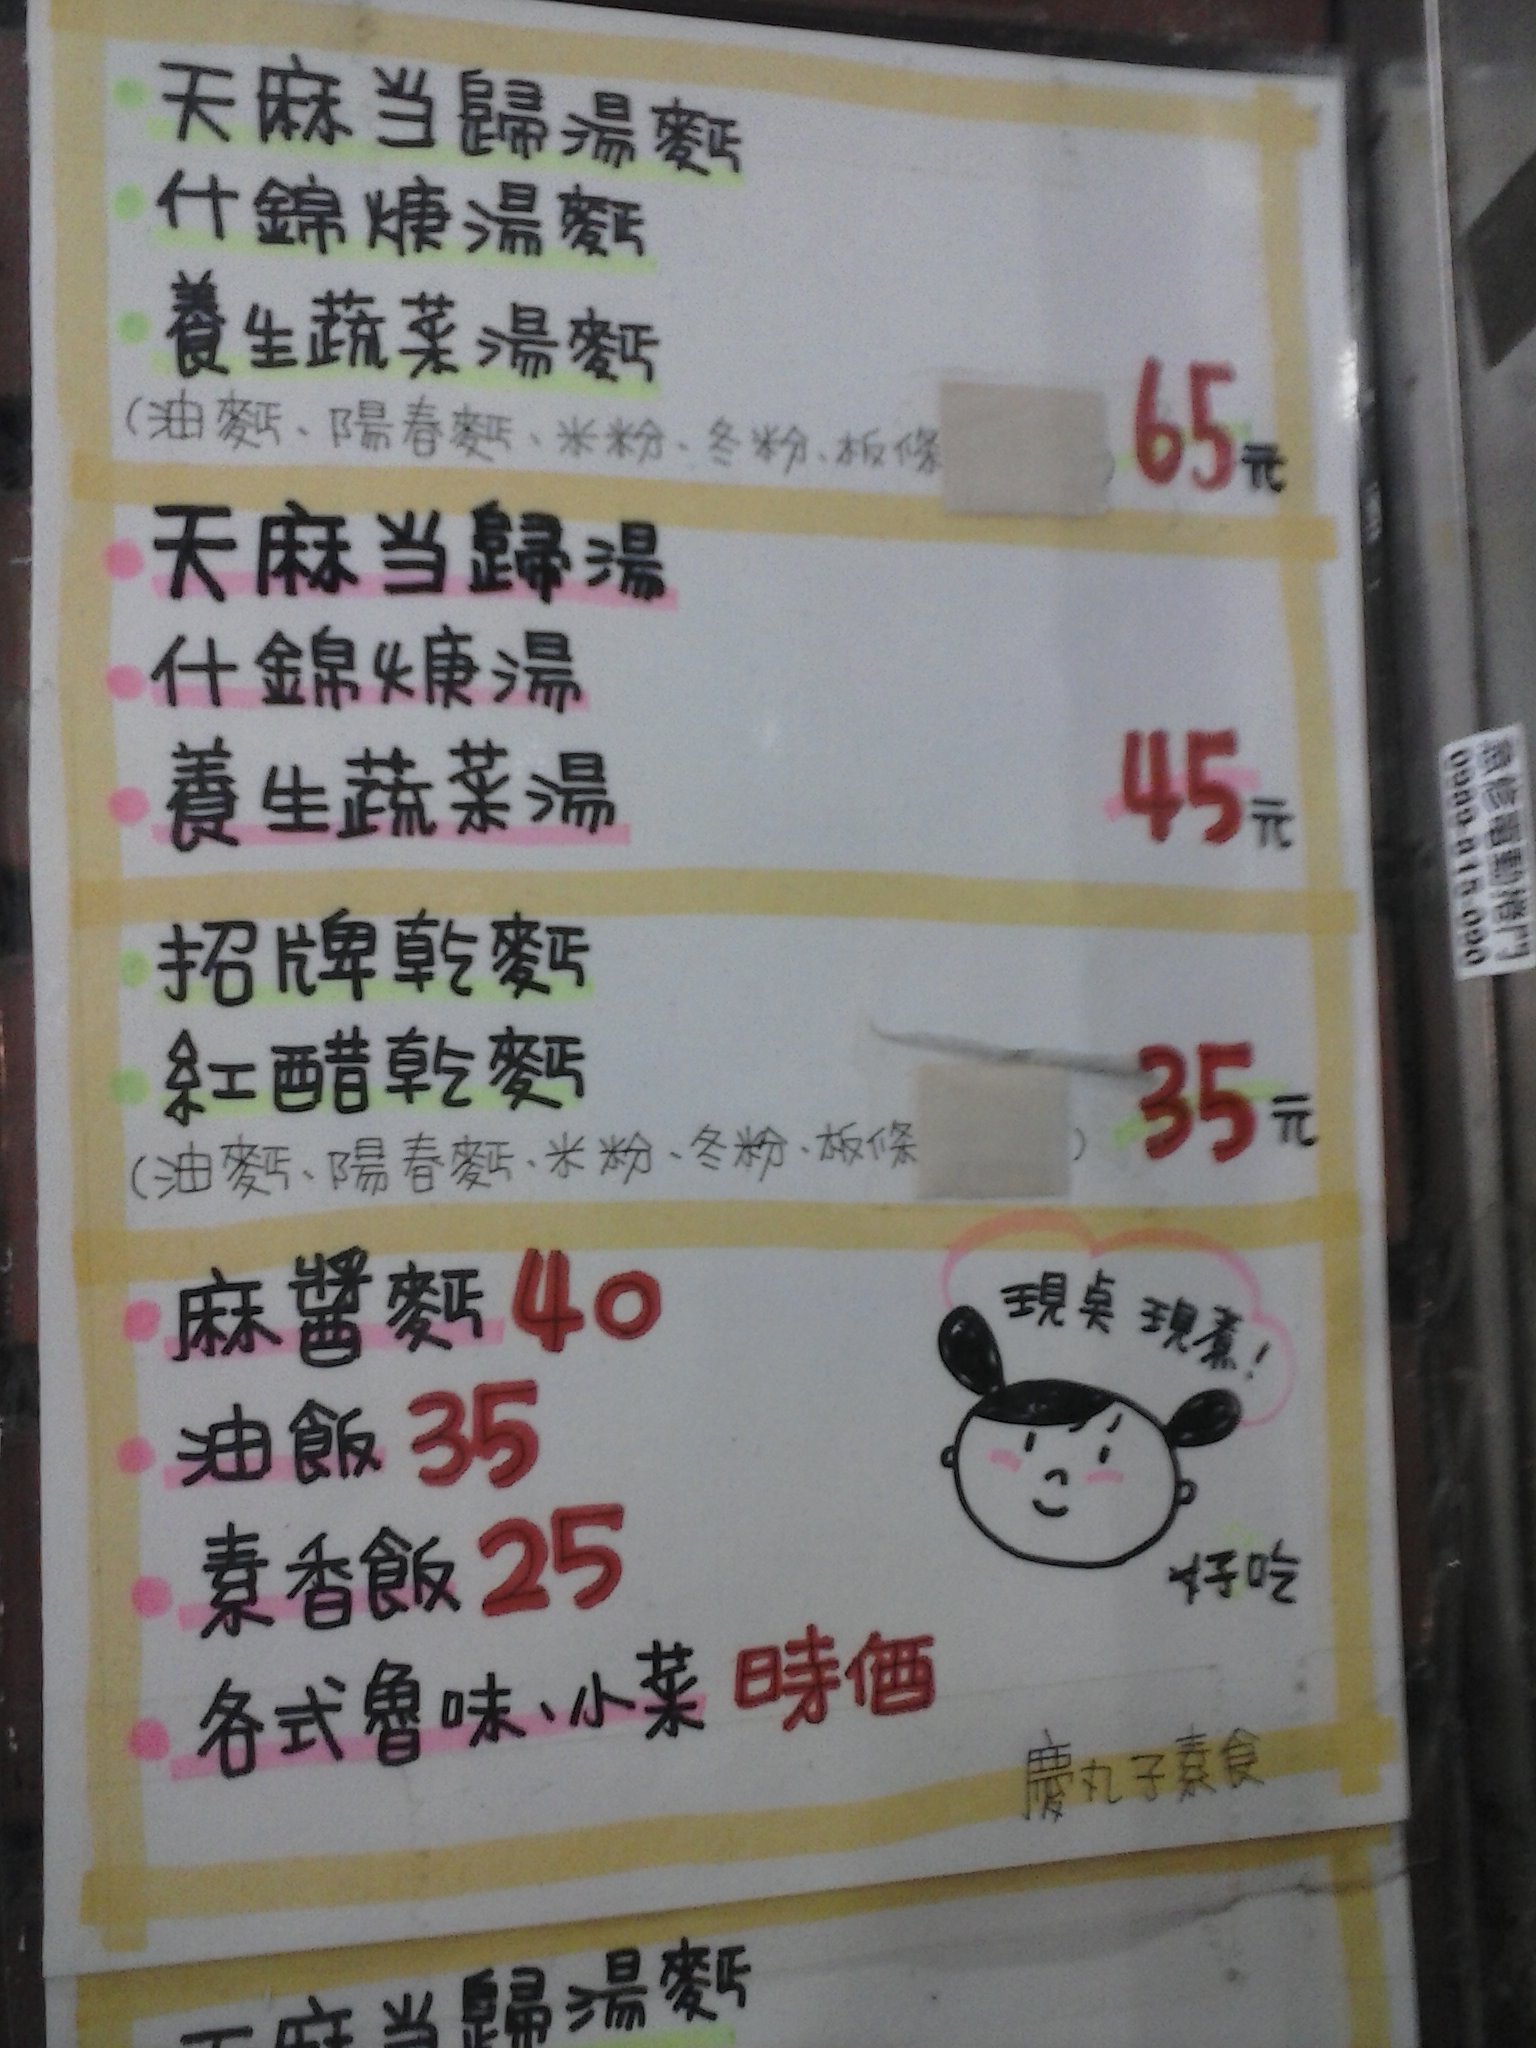 天麻当歸湯麵
什錦焿湯麵
養生蔬菜湯麵
(油麵、陽春麵、米粉、冬粉、板條 ) 65元
天麻当歸湯
什錦焿湯
養生蔬菜湯
45元
招牌乾麵
紅醋乾麵
(油麵、陽春麵、米粉、冬粉、板條 ) 35元
麻醬麵 40
油飯 35
素香飯 25
各式魯味、小菜 時価
現桌 現煮!
好吃
慶丸子素食
天麻当歸湯麵
急修電動捲門